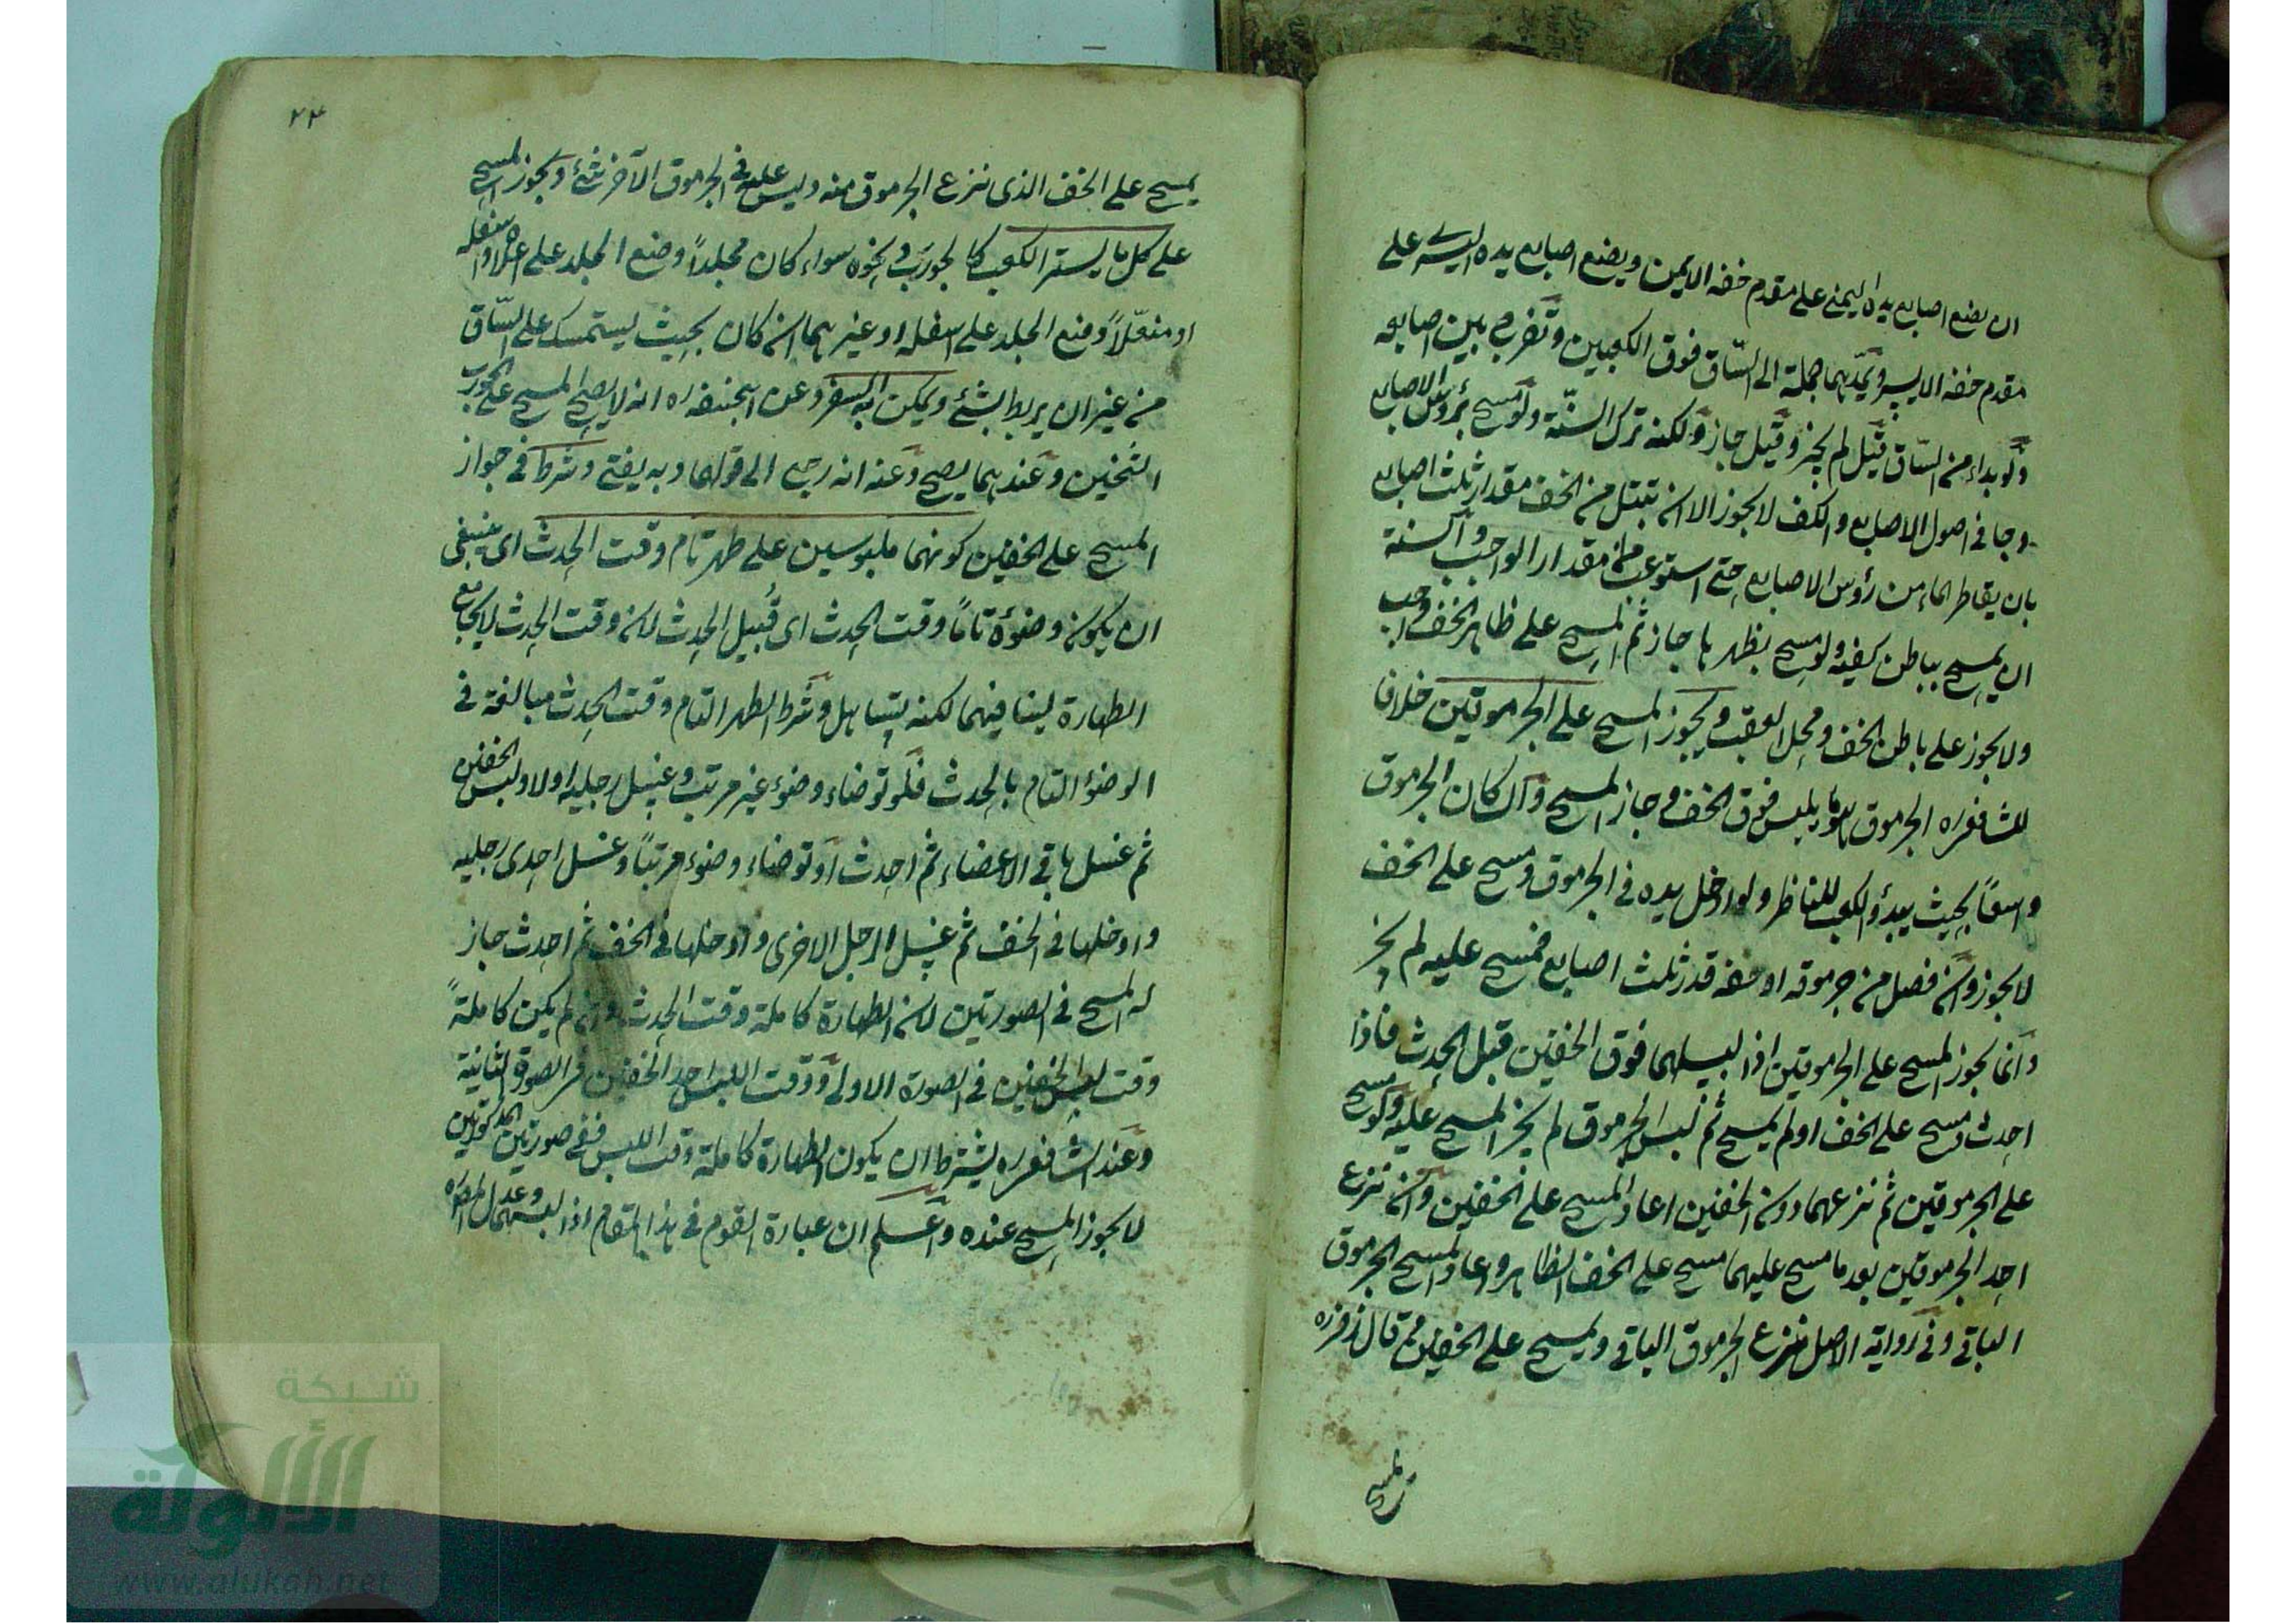 ان يضع اصابع يده اليمنى على مقدم خفه الايمن ويضع اصابع يده اليسرى على
مقدم خفه الايسر ويمدهما جملة الى الساق فوق الكعبين وتفرج بين اصابعه
ولو بداء من الساق قيل لم يجز وقيل جاز ولكنه ترك السنة ولو مسح برؤس الاصابع
وجافى اصول الاصابع والكف لا يجوز الا ان تبتل من الخف مقدار ثلث اصابع
بان يقاطر الماء من رؤس الاصابع حتى استوعب مقدار الواجب والسنة
ان يمسح بباطن كفيه ولو مسح بظهرها جاز ثم المسح على ظاهر الخف واجب
ولا يجوز على باطن الخف ومحل العقب ويجوز المسح على الجرموقين خلافا
للشافعى ره الجرموق ما يلبس فوق الخف وجاز المسح وان كان الجرموق
واسعاً بحيث يبدؤ الكعب للناظر ولو ادخل يده فى الجرموق ومسح على الخف
لا يجوز وان فصل من جرموقه او خفه قدر ثلث اصابع فمسح عليه لم يجز
وانما يجوز المسح على الجرموقين اذا لبسهما فوق الخفين قبل الحدث فاذا
احدث ومسح على الخف او لم يمسح ثم لبس الجرموق لم يجز المسح عليه ولو مسح
على الجرموقين ثم نزعهما دون الخفين اعاد المسح على الخفين وان نزع
احد الجرموقين بعد ما مسح عليهما مسح على الخف الظاهر واعاد المسح الجرموق
الباقى وفى رواية الاصل ينزع الجرموق الباقى ويمسح على الخفين قال زفر ره
يمسح
٢٤
يمسح على الخف الذى نزع الجرموق منه وليس عليه فى الجرموق الآخر شئ ويجوز المسح
على كل ما يستر الكعب كالجورب ونحوه سواء كان مجلداً وضع الجلد على اعلاه واسفله
او منعّلاً وضع الجلد على اسفله او غيرهما ان كان بحيث يستمسك على السّاق
من غير ان يربط بشئ ويمكن به السفر وعن ابيحنيفه ره انه لا يصح المسح على الجورب
الثخين وعندهما يصح وعنه انه رجع الى قولهما وبه يفتى وشرط فى جواز
المسح على الخفين كونهما ملبوسين على طهر تام وقت الحدث اى ينبغى
ان يكون وضوؤه تامّاً وقت الحدث اى قُبيل الحدث لان وقت الحدث لا يجامع
الطهارة لينافيهما لكنه يتساهل وشرط الطهر التام وقت الحدث مبالغة فى
الوضؤ التام بالحدث فلو توضاء وضوء غير مرتب وغسل رجليه اولا ولبس الخفين
ثم غسل باقى الاعضاء ثم احدث او توضاء وضوء مرتباً وغسل احدى رجليه
وادخلها فى الخف ثم غسل الرجل الاخرى وادخلها فى الخف ثم احدث جاز
له المسح فى الصورتين لان الطهارة كاملة وقت الحدث وان لم يكن كاملةً
وقت لبس الخفين فى الصورة الاولى ووقت اللبس احد الخفين فى الصورة الثانية
وعند الشافعى ره يشترط ان يكون الطهارة كاملة وقت اللبس ففى صورتين المذكورتين
لا يجوز المسح عنده واعلم ان عبارة القوم فى هذا المقام اذا لبسهما